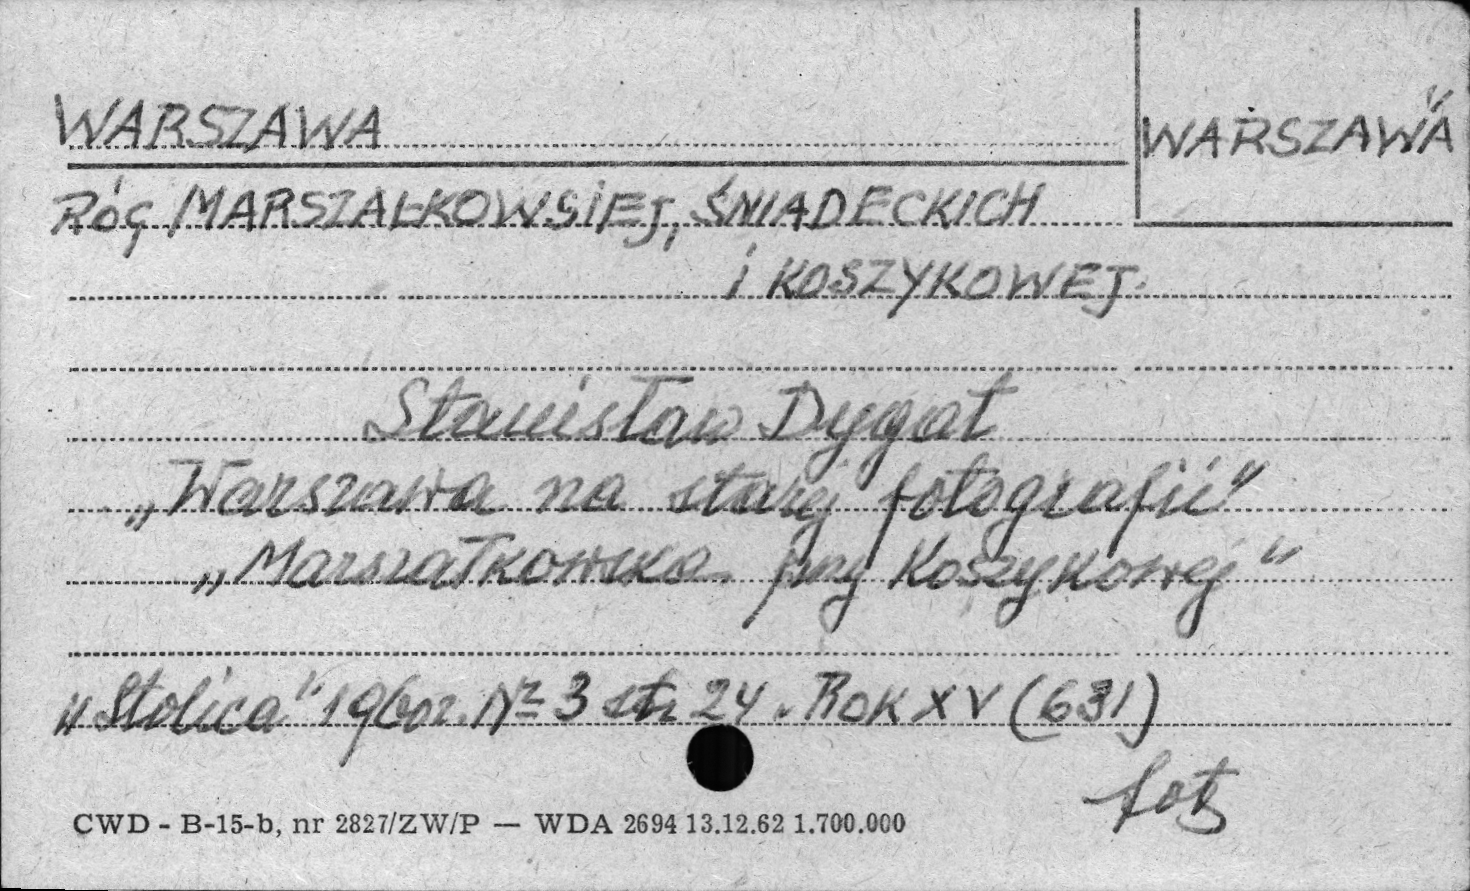 WARSZAWA
WARSZAWA
Róg MARSZAŁKOWSIEJ, ŚNIADECKICH
i KOSZYKOWEJ.
Stanisław Dygat
„Warszawa na starej fotografii"
„Marszałkowska przy Koszykowej"
„Stolica" 1960r. Nr 3 str 24. Rok XV (631)
fot
CWD - B-15-b, nr 2827/ZW/P — WDA 2694 13.12.62 1.700.000